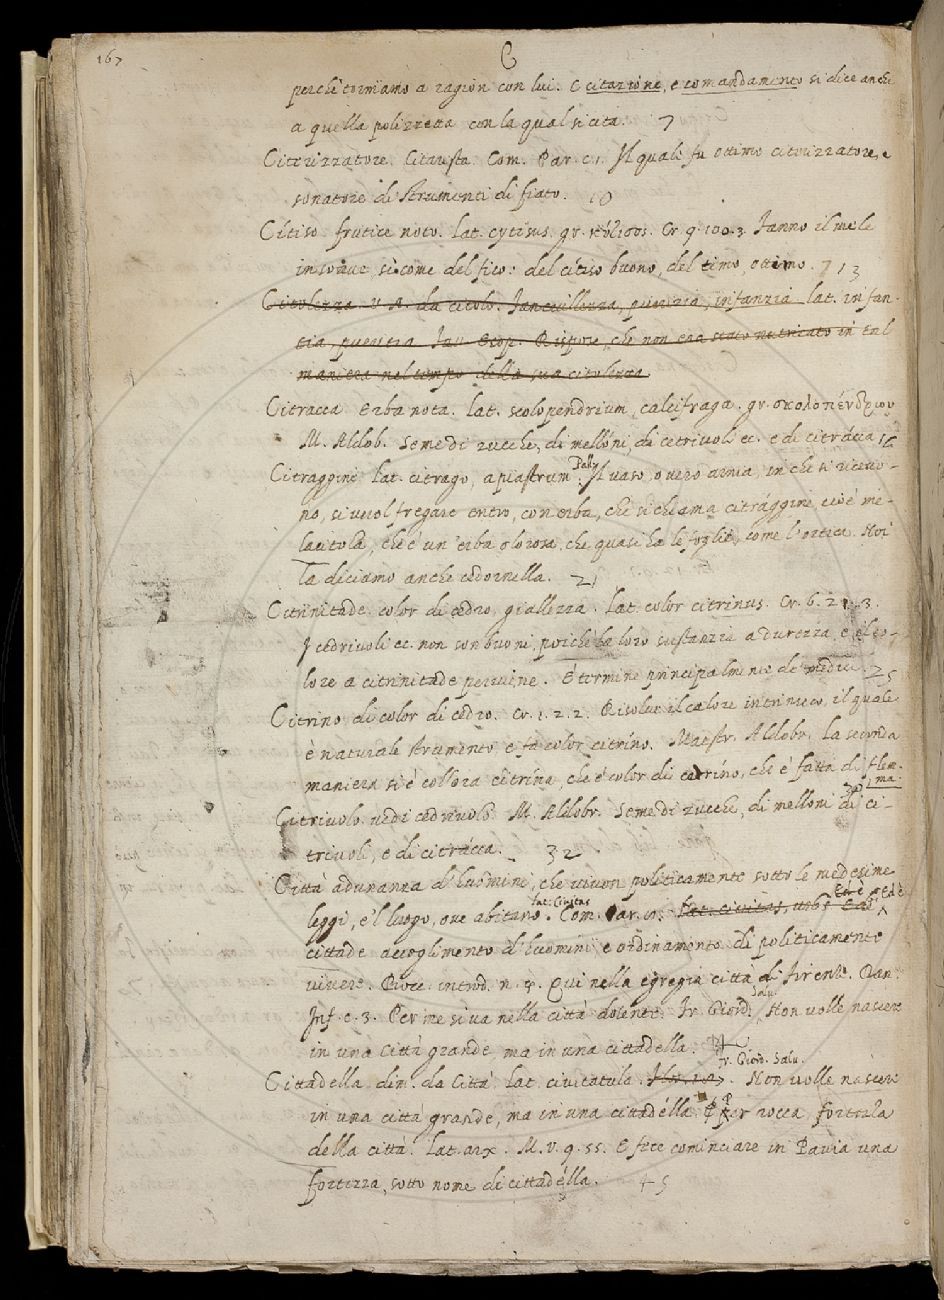 167
C
perchè torniamo a ragion con lui. E citazione, e comandamento si dice anche
a quella polizzetta con la qual si cita. 7
Citerizzatore. Citarista. Com. Par. c. 1. Il quale fu ottimo citerizzatore, e
sonatore di strumenti di fiato. 10
Citiso frutice noto. Lat. cytisus. gr. Cr. 9. 100. 3. Fanno il mele
insoave, sì come del fico: del citiso buono, del timo, ottimo. 713
Citolezza V. A. da citolo. Fanciullezza, puerizia, infanzia lat. infan-
tia, pueritia Fav. Esop. Rispose, che non era stato nutricato in tal
maniera nel tempo della sua citolezza
Citracca Erba nota. Lat. scolopendrium, calcifraga. gr. σκολοπένδριον
M. Aldob. Seme di zucche, di melloni, di cetriuoli ec. e di citracca 16
Pall.
Citraggine Lat. citrago, apiastrum. Il vaso, overo arnia, in che si ricevo-
no, si vuol fregare entro, con erba, che si chiama citraggine, cioè me-
lacitola, che è un'erba olorosa, che quasi ha le foglie, come l'ortica. Noi
la diciamo anche cedornella. 21
Citrinitade color di cedro, giallezza. Lat. color citrinus. Cr. 6. 21. 3.
I cedriuoli ec. non son buoni, poichè la loro sustanzia a durezza, e el co-
lore a citrinitade perviene. È termine principalmente de' medici. 25
Citrino, di color di cedro. Cr. 1. 2. 2. Risolve il calore intrinsico, il quale
è naturale strumento e fa color citrino. Maestr. Aldobr. La seconda
maniera si è collora citrina, che è color di cedrino, che è fatta di flem-
ma. 30
Citriuolo. vedi cedriuolo. M. Aldobr. Seme di zucche, di melloni di ci-
triuoli, e di citracca. 32
Città adunanza d'huomini, che vivon politicamente sotto le medesime
lat. Civitas
leggi, e 'l luogo, ove abitano. Com. Par. Lat. civitas, urbs
cittade accoglimento d'huomini e ordinamento di politicamente
vivere. Bocc. introd. n. 5. Qui nella egregia città di Firenze. Dan.
Salv.
Inf. c. 3. Per me si va nella città dolente. Fr. Giord. Non volle nascere
in una Città grande, ma in una cittadella.
Fr. Giord. Salv.
Cittadella dim. da Città. Lat. civitatula. Non volle nascere
in una città grande, ma in una cittadella. Per rocca, fortezza
della città. Lat. arx. M. V. 9. 55. E fece cominciare in Pavia una
fortezza, sotto nome di cittadella. 45